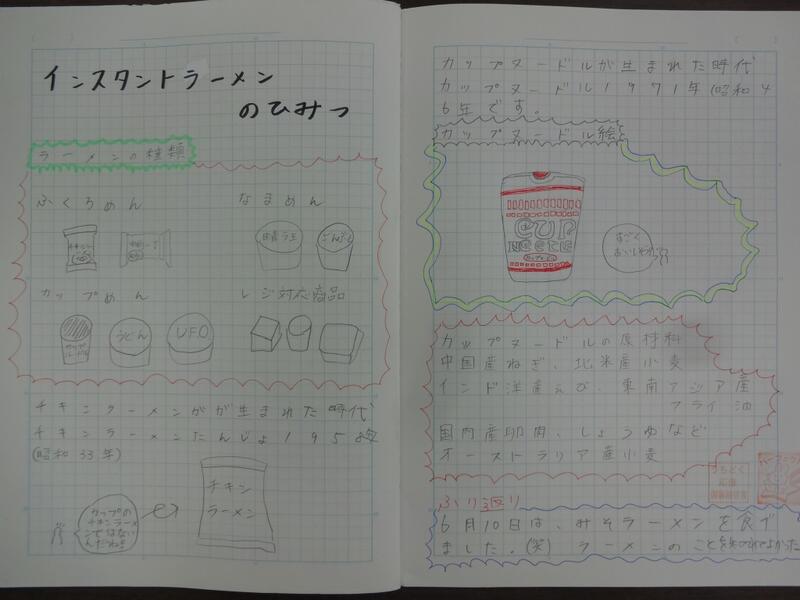 インスタントラーメン
のひみつ
ラーメンの種類
ふくろめん
なまめん
チキン
ラ王
カップめん
レンジ対応商品
うどん
UFO
チキンラーメンがが生まれた時代
チキンラーメンたんじょ1958年
(昭和33年)
カップの
チキンラーメ
ンではない
んだね!!
チキン
ラーメン
カップヌードルが生まれた時代
カップヌードル1971年(昭和4
6年です。
カップヌードル絵
CUP
NOODLE
すごく
おいしそう
カップヌードルの原材料
中国産ねぎ、北米産小麦
インド洋産えび、東南アジア産
フライ油
国内産卵、肉、しょうゆなど
オーストラリア産小麦
うちどく
ふり返り
6月10日は、みそラーメンを食べ
ました。(笑) ラーメンのことを知れてよかった